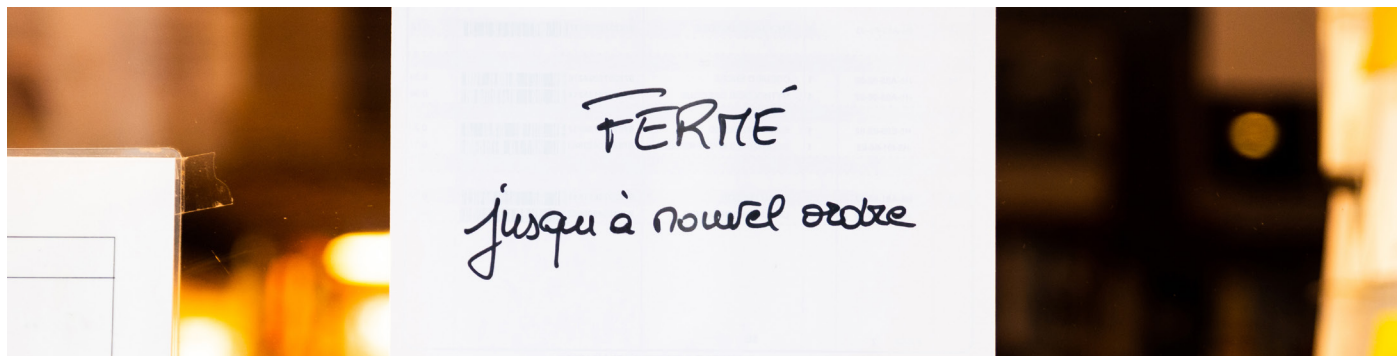 FERMÉ
jusqu'à nouvel ordre